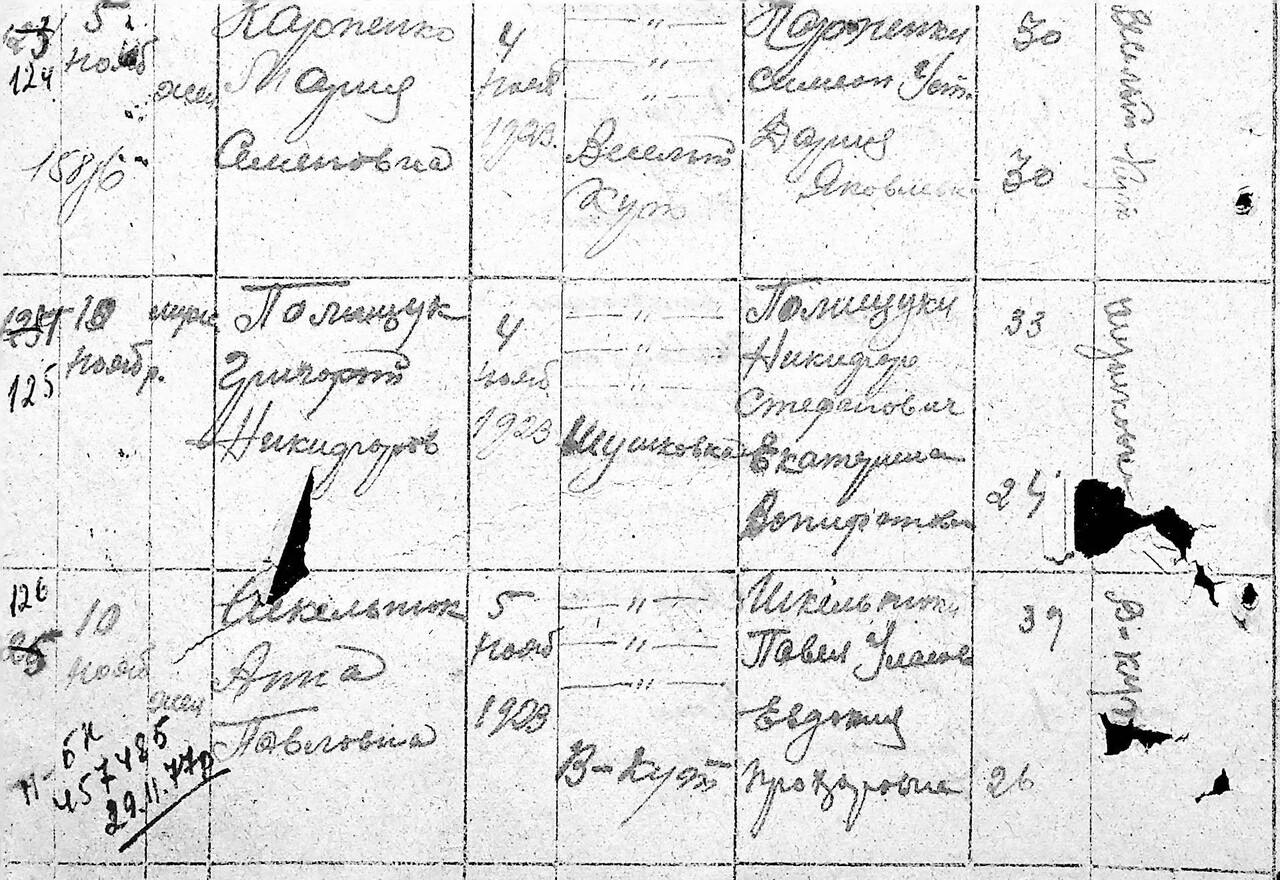 124
5
нояб
жен
Карпенко
Мария
Семеновна
4
нояб
1923.
— " —
— " —
— " —
Веселый
Кут
Карпенки
Симеон Уст.
Дария
Яковлевна
30
30
Веселый Кут
125
10
ноябр.
мужс
Полищук
Григорий
Никифоров
4
нояб
1923
— " —
— " —
— " —
Шушковка
Полищуки
Никифор
Степанович
Екатерина
33
24
126
25
10
нояб
жен
Шкельнюк
Анна
Павловна
5
нояб
1923
— " —
— " —
— " —
В-Кут
Шкельнюки
Павел
Евдокия
39
26
В-Кут
457485
29.11.77р